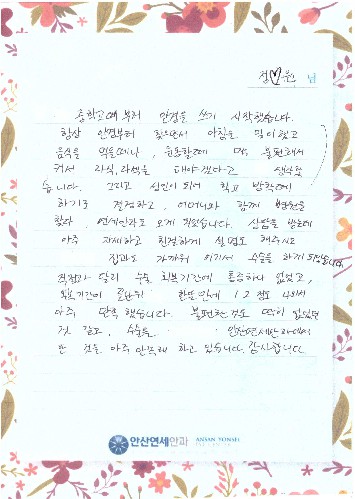 정♡원 님
중학교때부터 안경을 쓰기 시작했습니다.
항상 안경부터 찾으면서 아침을 맞이했고
음식을 먹을때나, 운동할때에 매우 불편해서
커서 라식, 라섹을 해야겠다고 생각했
습니다. 그리고 성인이 되서 학교 방학에
하기로 결정하고, 어머니와 함께 병원을
찾다, 연세안과로 오게 되었습니다. 상담을 받는데
아주 자세하고 친절하게 설명도 해주시고
집과도 가까워 여기서 수술을 하게 되었습니다.
걱정과 달리 수술 회복기간에 통증하나 없었고,
회복기간이 한달만에 1.2 정도 나와서
아주 만족했습니다. 불편한것도 딱히 없었던
것 같고, 수술을 안산연세안과에서
한 것을 아주 만족해 하고 있습니다. 감사합니다
안산연세안과 ANSAN YONSEI